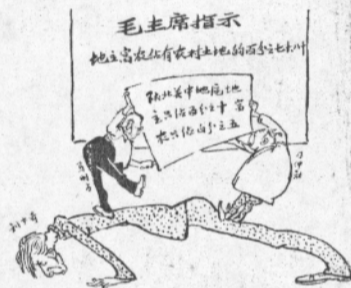 毛主席指示
地主富农佔有农村土地的百分之七十八十
陕北关中地区地
主只佔百分之十富
农只佔百分之五
马明方
刘少奇